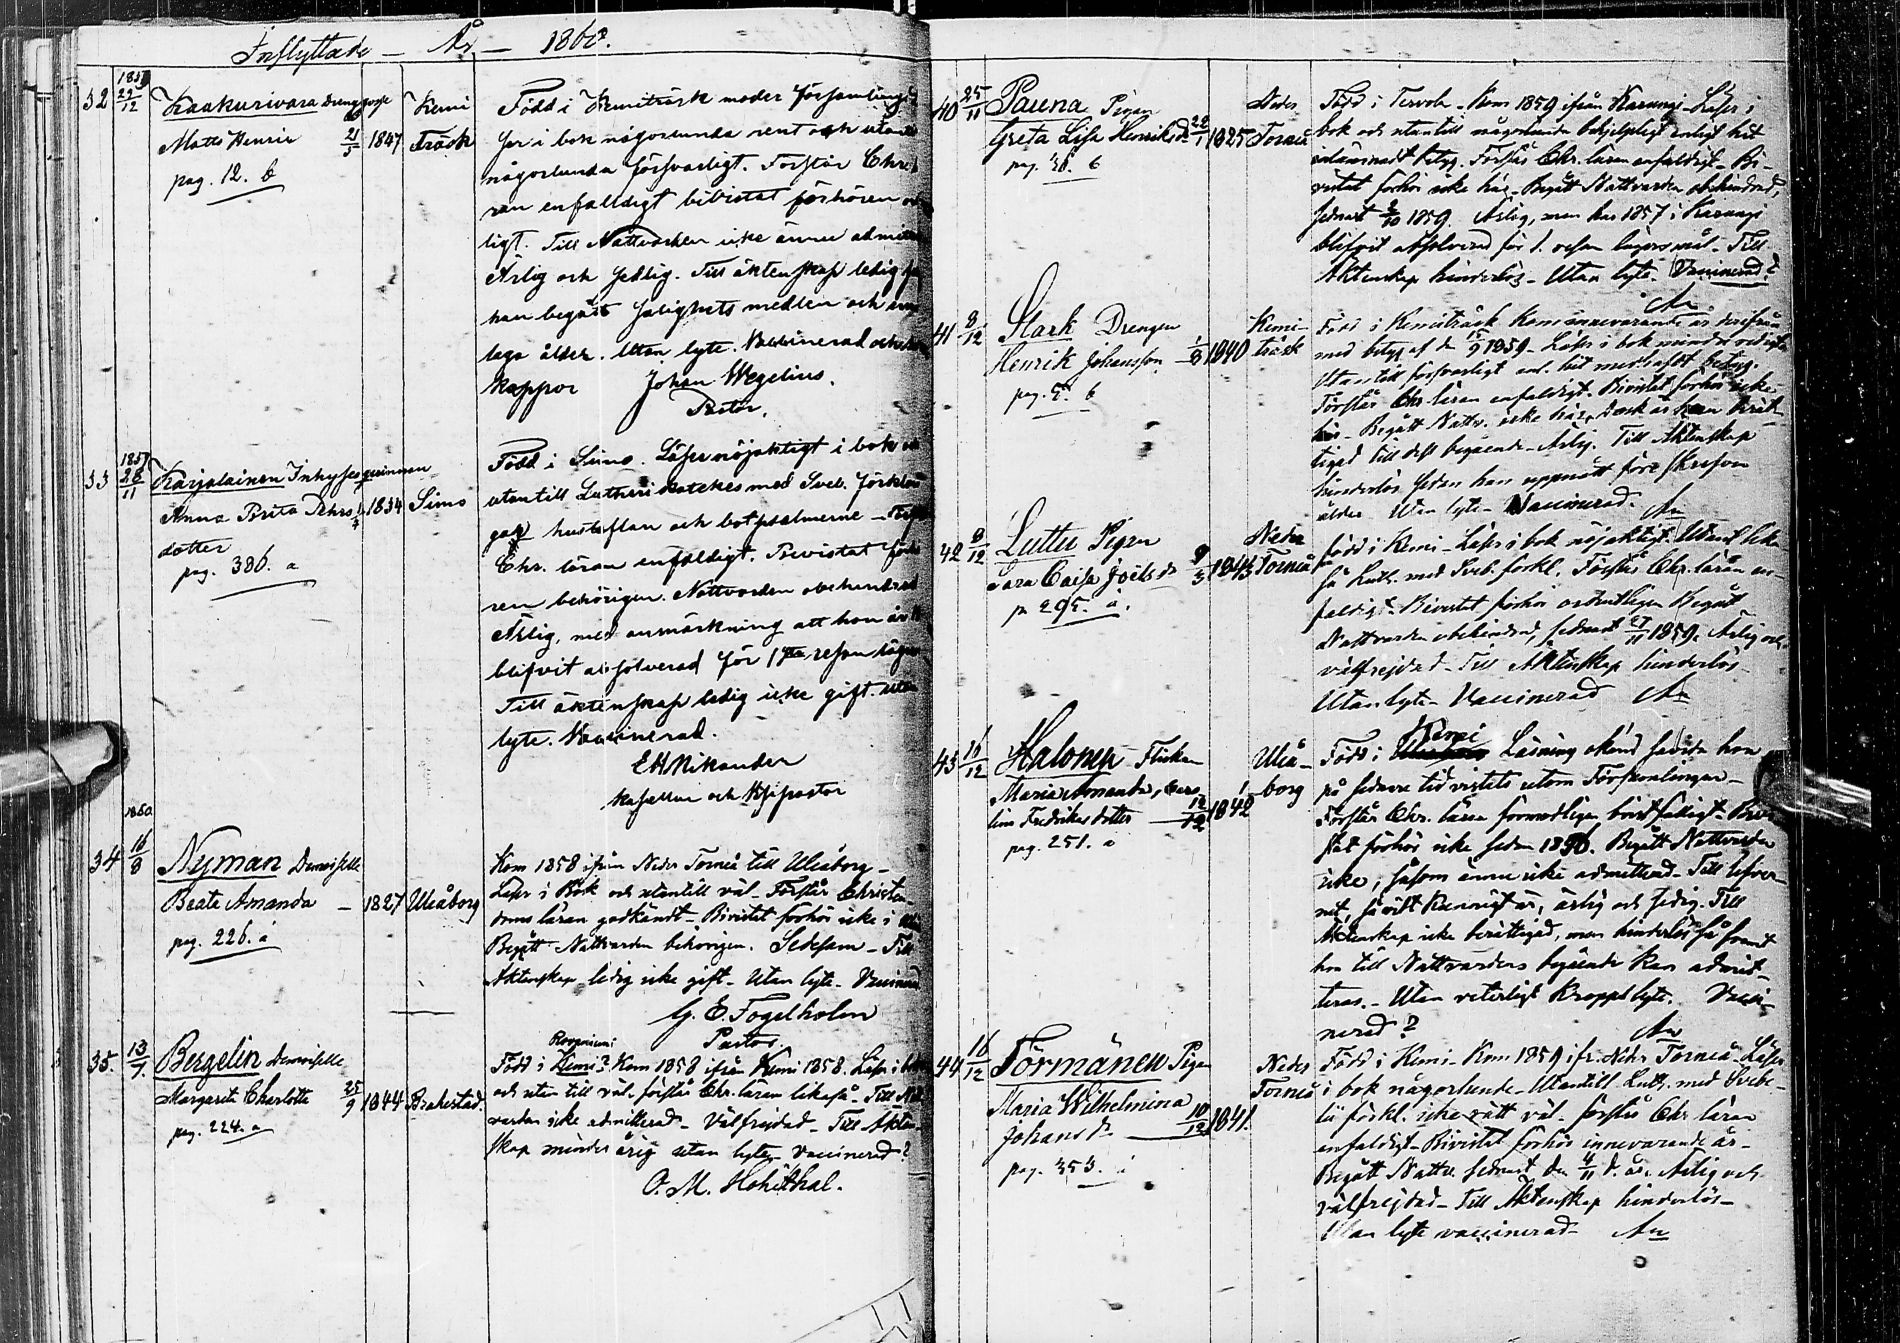 Inflyttade – År – 1860.
32 1859 29/12 Kaakurivaara Drenggosse
Matts Henric 21/5 1847
pag. 12. b
Kemi
Träsk
Född i Kemiträsk moder församling
ser i bok någorlunda rent och utan
någorlunda försvarligt. Förstår Chr.
ran enfaldigt bivistat förhören or
ligt. Till Nattvarden icke ännu admitte
Ärlig och sedlig. Till äktenskap ledig
han begått salighets medlen och
laga ålder. Utan lyte. Vaccinerad
koppor Johan Wegelius.
Pastor.
33 1859 28/11 Karjalainen Inhyses qvinnan
Anna Brita Pehrs 1834 Simo
dotter
pag. 386. a
Född i Simo. Läser nöjaktigt i bok
utantill Lutheri Kateches med Sveb. förkla
gar hustaflan och botpsalmerne
Chr. läran enfaldigt. Bevistat
ren behörigen. Nattvarden obehindrad
Ärlig, med anmärkning att hon är
blifvit absolverad för 1sta resan
Till äktenskap ledig icke gift. utan
lyte. Vaccinerad.
E H Nikander
Kapellan och Vpastor
1860.
34 16/8 Nyman Demoiselle
Beata Amanda – 1827 Uleåborg
pag. 226. a
Kom 1858 ifrån Neder Torneå till Uleåborg –
Läser i Bok och utantill väl – Förstår Christen-
doms läran godkändt – Bivistat förhör icke i
Begått Nattvarden behörigen. Sedesam – Till
Äktenskap ledig icke gift – Utan lyte – Vaccinerad
G. E. Fogelholm
Pastor.
35. 13/7. Bergelin Demoiselle
Margareta Charlotta 25/9 1844 Brahestad.
pag. 224. a
Rovaniemi
Född i Kemi? Kom 1858 ifrån Kemi 1858. Läser i bok
och utan till väl. förstår Chr. läran likaså – Till Natt
varden icke admitterad – Välfrejdad – Till Äkten
skap minder årig utan lyte – vaccinerad?
O. M. Hohēthal.
40 25/11 Pauna Pigan
Greta Lisa Henriksdr 28/1 1825
pag. 48. b
Neder
Torneå
Född i Tervola – Kom 1859 ifrån Karungi – Läser i
bok och utantill någorlunda behjelpligt enligt hit
inlämnadt betyg. Förstår Chr. läran enfaldigt – Bi-
vistat förhör icke här – Begått Nattvarden obehindrad,
sednast 2/10 1859. Ärlig, men har 1857 i Karungi
blifvit absolverad för 1. resan lägersmål – Till
Äktenskap hinderlös – Utan lyte. Vaccinerad?
An
41 8/12 Stark Drengen
Henrik Johansson 1/8 1840
pag. 5. b
Kemi-
träsk
Född i Kemiträsk Kom innevarande år derifrån
med betyg af d. 15/9 1859 – Läser i bok mindre redigt
Utantill försvarligt enl. hit medhafdt betyg.
Förstår Chr läran enfaldigt. Bivistat förhör icke
här – Begått Nattv. icke här, dock är han berät-
tigad till dess begående – Ärlig. Till Äktenskap
hinderlös sedan han uppnått före skrefven
ålder Utan lyte – Vaccinerad. An
42 8/12 Luttu Pigan
Sara Caisa Joelsdr 9/3 1843
p 295. a.
Neder
Torneå
född i Kemi – Läser i bok nöjaktigt. Utant. lika
så Luth. med Sveb. förkl. Förstår Chr. läran en-
faldigt. Bivistat förhör ordentligen Begått
Nattvarden obehindrad, sednast 27/11 1859. Ärlig och
välfrejdad – Till Äktenskap hinderlös –
Utan lyte – Vaccinerad An
43 16/12 Halonen Flickan
Maria Amanda, Caro
lina Fredriksdotter 12/12 1842
pag. 251. a
Uleå-
borg
Kemi
Född i Läsning okänd sedan hon
på sednare tid vistats utom Församlingen –
Förstår Chr. läran förmodligen bristfälligt – Bivi
stat förhör icke sedan 1856. Begått Nattvarden
icke, såsom ännu icke admitterad – Till lefver-
net, så vidt kunnigt är, ärlig och sedig. Till
Äktenskap icke berättigad, men hinderlös så framt
hon till Nattvardens begående kan admit-
teras. – Utan veterligt kroppslyte. Vacci-
nerad? An
44 16/12 Törmänen Pigan
Maria Wilhelmina
Johansdr 10/12 1841.
pag. 353. a
Neder
Torneå
Född i Kemi. Kom 1859 ifr. Neder Torneå – Läser
i bok någorlunda – Utantill Luth. med Svebe-
lii förkl. icke rätt väl. förstår Chr läran
enfaldigt – Bivistat förhör innevarande år –
Begått Nattv. sednast den 4/11 d. år. Ärlig och
välfrejdad – Till Äktenskap hinderlös –
Utan lyte vaccinerad – An